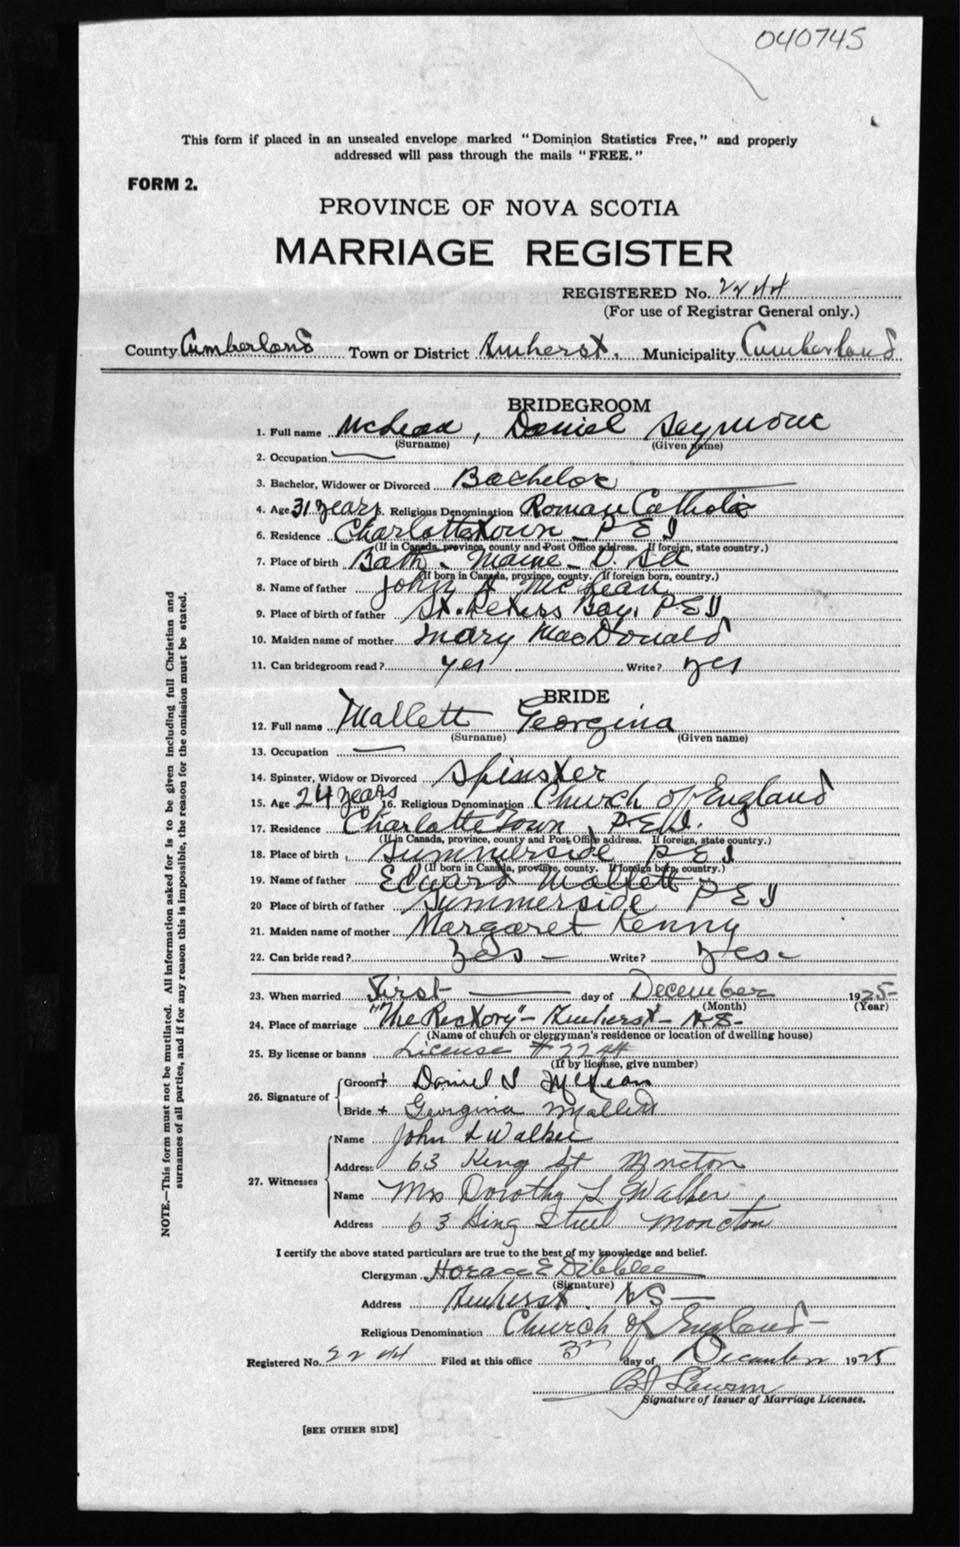 040745
This form if placed in an unsealed envelope marked "Dominion Statistics Free," and properly
addressed will pass through the mails "FREE."
FORM 2.
PROVINCE OF NOVA SCOTIA
MARRIAGE REGISTER
REGISTERED No. 2244
(For use of Registrar General only.)
County Cumberland Town or District Amherst, Municipality Cumberland
BRIDEGROOM
1. Full name McLean, Daniel Seymour
(Surname) (Given name)
2. Occupation —
3. Bachelor, Widower or Divorced Bachelor
4. Age 31 years 5. Religious Denomination Roman Catholic
6. Residence Charlottetown - P E I
(If in Canada, province, county and Post Office address. If foreign, state country.)
7. Place of birth Bath - Maine - U.S.A
(If born in Canada, province, county. If foreign born, country.)
8. Name of father John A McLean
9. Place of birth of father St. Peters Bay, P E I
10. Maiden name of mother Mary MacDonald
11. Can bridegroom read? yes Write? yes
BRIDE
12. Full name Mallett Georgina
(Surname) (Given name)
13. Occupation —
14. Spinster, Widow or Divorced Spinster
15. Age 24 years 16. Religious Denomination Church of England
17. Residence Charlottetown, P.E.I.
(If in Canada, province, county and Post Office address. If foreign, state country.)
18. Place of birth Summerside P E I
(If born in Canada, province, county. If foreign born, country.)
19. Name of father Edward Mallett
20 Place of birth of father Summerside P E I
21. Maiden name of mother Margaret Kenny
22. Can bride read? Yes - Write? Yes -
23. When married First — day of December 1925
(Month) (Year)
24. Place of marriage "The Rectory" - Amherst - N.S -
(Name of church or clergyman's residence or location of dwelling house)
25. By license or banns License # 2244
(If by license, give number)
26. Signature of Groom + Daniel S McLean
Bride + Georgina Mallett
27. Witnesses Name John L Walker
Address 63 King St Moncton
Name Mrs Dorothy L Walker
Address 63 King Street Moncton
I certify the above stated particulars are true to the best of my knowledge and belief.
Clergyman Horace E Dibblee
(Signature)
Address Amherst. NS —
Religious Denomination Church of England -
Registered No. 2244 Filed at this office 3rd day of December 1925
Signature of Issuer of Marriage Licenses.
[SEE OTHER SIDE]
NOTE.—This form must not be mutilated. All information asked for is to be given including full Christian and
surnames of all parties, and if for any reason this is impossible, the reason for the omission must be stated.